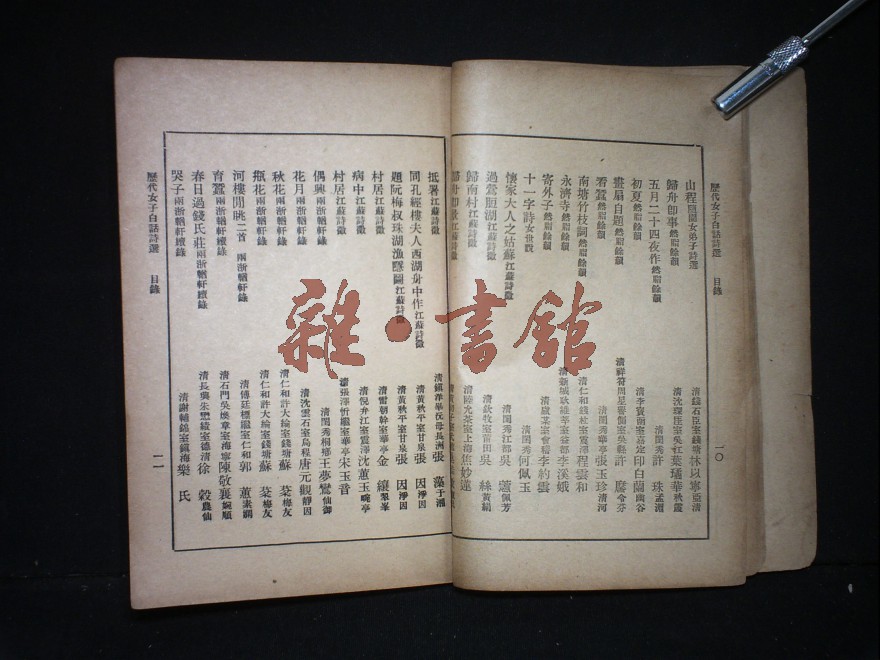 歷代女子白話詩選 目錄 一〇
山程 隨園女弟子詩選 清錢石臣室錢塘林以寧 亞清
歸舟卽事 然脂餘韻 清沈璨臣室吳江葉璚華 秋霞
五月二十四夜作 然脂餘韻 清閨秀許珠 孟淵
初夏 然脂餘韻 清李寶函室嘉定印白蘭 幽谷
畫扇自題 然脂餘韻 清祥符周星譽側室吳縣許 令芬
看蠶 然脂餘韻 清閨秀華亭張玉珍 清河
南塘竹枝詞 然脂餘韻 清仁和錢 室震澤程雲和
永濟寺 然脂餘韻 清新城耿維 室益都李溪娥
寄外子 然脂餘韻 清虞某室會稽李約雲
十一字詩 女世說 清閨秀何佩玉
懷家大人之姑蘇 江蘇詩徵 清閨秀江都吳蕙 佩芳
過鴛脰湖 江蘇詩徵 清欽牧室莆田吳絲 黃絹
歸南村 江蘇詩徵 清陸允 室上海焦妙蓮
歸舟卽景 江蘇詩徵
抵暑 江蘇詩徵 清鎮洋畢沅母長洲張藻 于湘
同孔經樓夫人西湖舟中作 江蘇詩徵 清黃秋平室甘泉張因 淨因
題阮梅叔珠湖漁隱圖 江蘇詩徵 清黃秋平室甘泉張因 淨因
村居 江蘇詩徵 清 朝幹室華亭金 犁峯
病中 江蘇詩徵 清倪弁江室震澤沈蕙玉 畹亭
村居 江蘇詩徵 清張澤忻繼室華亭宋玉音
偶興 兩浙輶軒錄 清閨秀桐鄉王夢鸞 仙御
花月 兩浙輶軒錄 清沈雲石室烏程唐元觀 靜因
秋花 兩浙輶軒錄 清仁和許大綸室錢塘蘇 梅友
瓶花 兩浙輶軒錄 清仁和許大綸室錢塘蘇 梅友
河樓閒眺二首 兩浙輶軒錄 清傅廷標繼室仁和郭蕙 素娟
育蠶 兩浙輶軒續錄 清石門吳煥章室海寧陳敬襄 婉順
春日過錢氏莊 兩浙輶軒續錄 清長興朱 室德清徐 農仙
哭子 兩浙輶軒續錄 清謝輔錦室鎮海樂氏
歷代女子白話詩選 目錄 一一
雜·書館